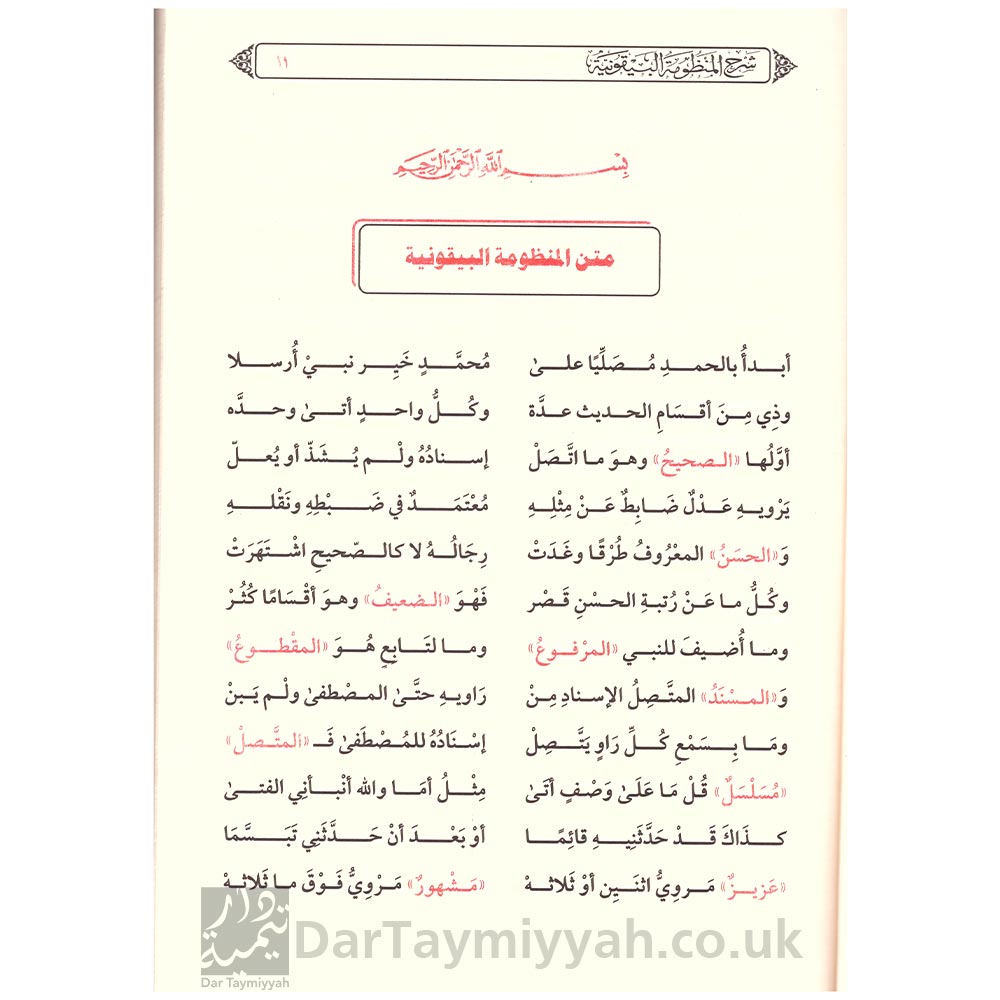 شرح المنظومة البيقونية ١٩
بسم الله الرحمن الرحيم
متن المنظومة البيقونية
أبـدأُ بالحمـدِ مُـصَلِّيًا علـىٰ مُحمَّـدٍ خَيِـر نبـيْ أُرسـلا
وذِي مِـنَ أقسَـامِ الحديث عـدَّة وكُـلُّ واحـدٍ أتـىٰ وحـدَّه
أوَّلُها «الـصحيحُ» وهـوَ ما اتَّصَلْ إسـنادُهُ ولْـم يُـشَذّ أو يُعـلّ
يَرْويـهِ عَـدْلٌ ضَابِـطٌ عَـنْ مِثْلِـهِ مُعْتَمَـدٌ في ضَـبْطِهِ ونَقْلـهِ
وَ«الحسَنُ» المعْرُوفُ طُرْقًا وغَدَتْ رِجَالُـهُ لا كالـصّحيحِ اشْـتَهَرَتْ
وكُـلُّ ما عَـنْ رُتبـةِ الحسْـنِ قَصْر فَهْـوَ «الـضعيفُ» وهـوَ أقْسَامًا كُثُـرْ
ومـا أُضـيفَ للنبـي «المرْفـوعُ» ومـا لتَـابِعٍ هُـوَ «المقْطـوعُ»
وَ«المـسْنَدُ» المتَّصِلُ الإسنادِ مِـنْ رَاويـهِ حتَّـىٰ المـصْطفىٰ ولْم يَـبِنْ
ومَـا بِـسَمْعِ كُـلِّ رَاوٍ يَتَّـصِلْ إسْـنَادُهُ للمُـصْطَفىٰ فَـ «المتَّـصلْ»
«مُسَلْسَلٌ» قُلْ مَا عَلَىٰ وَصْفٍ أتَىٰ مِثْـلُ أمَـا والله أنْبـأنِي الفتـىٰ
كـذَاكَ قَـدْ حَدَّثَنِيـهِ قائِمًـا أوْ بَعْـدَ أنْ حَـدَّثَنِي تَبَـسَّمَا
«عَزيـزٌ» مَـروِيُّ اثنَـينِ أوْ ثَلاثـهْ «مَـشْهورٌ» مَـرْوِيُّ فَـوْقَ ما ثَلاثـهْ
دار تيمية
Dar Taymiyyah
DarTaymiyyah.co.uk